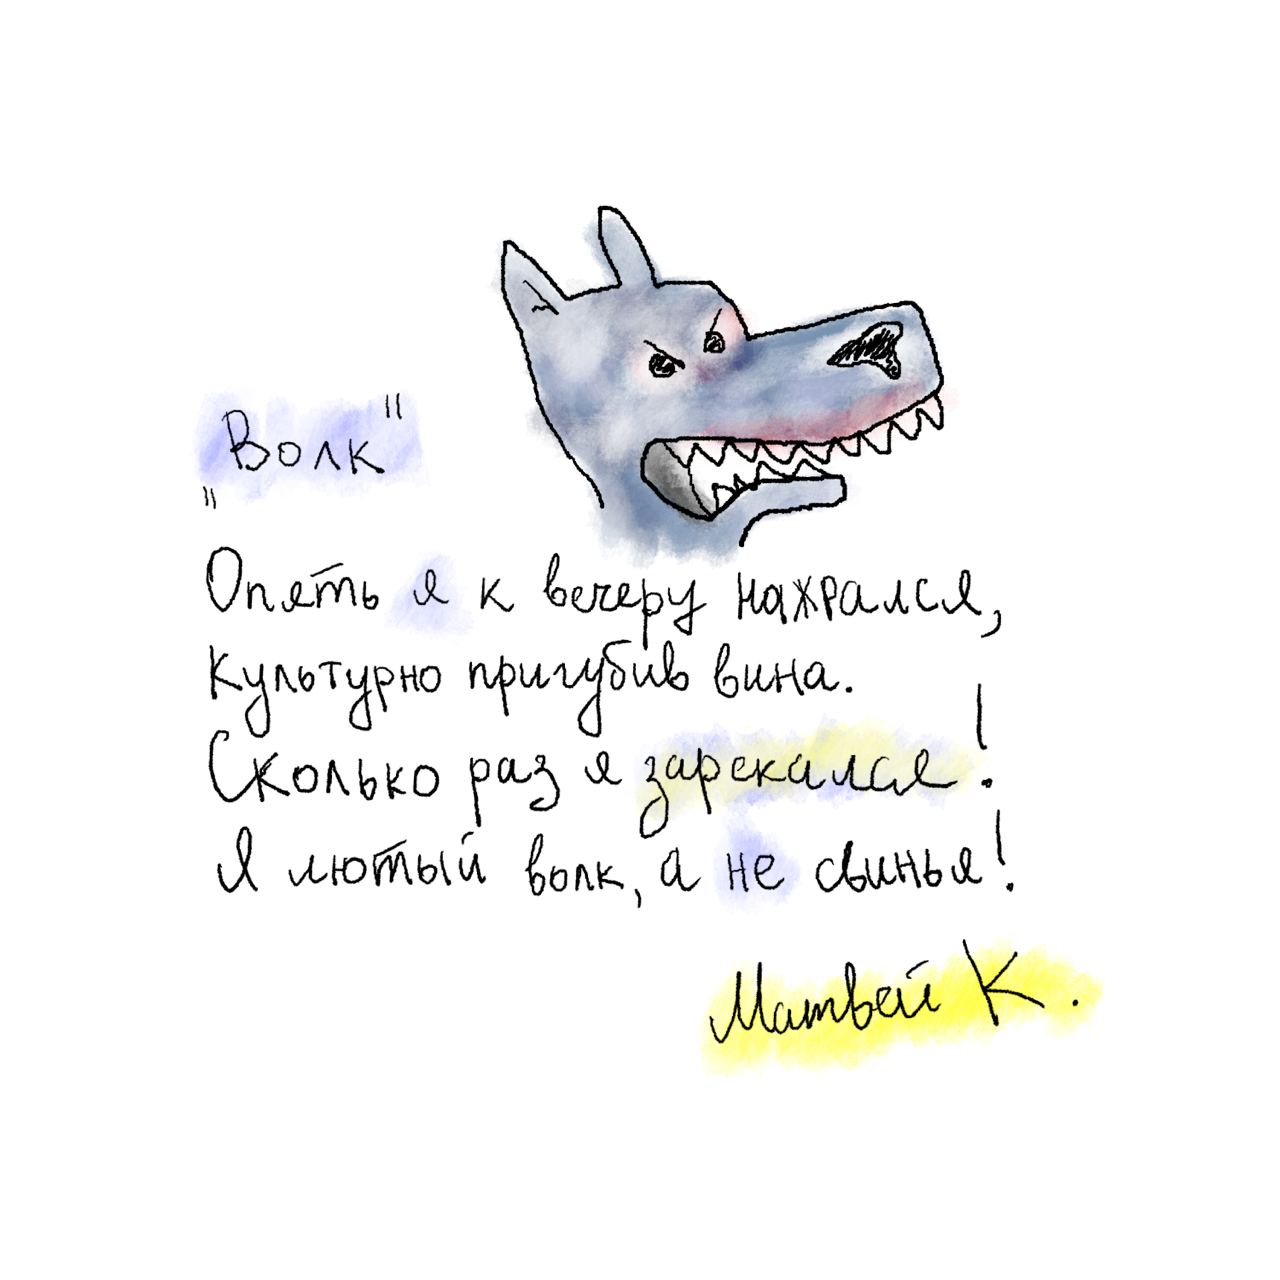 "Волк"
Опять я к вечеру нахрался,
Культурно пригубив вина.
Сколько раз я зарекался!
Я лютый волк, а не свинья!
Матвей К.